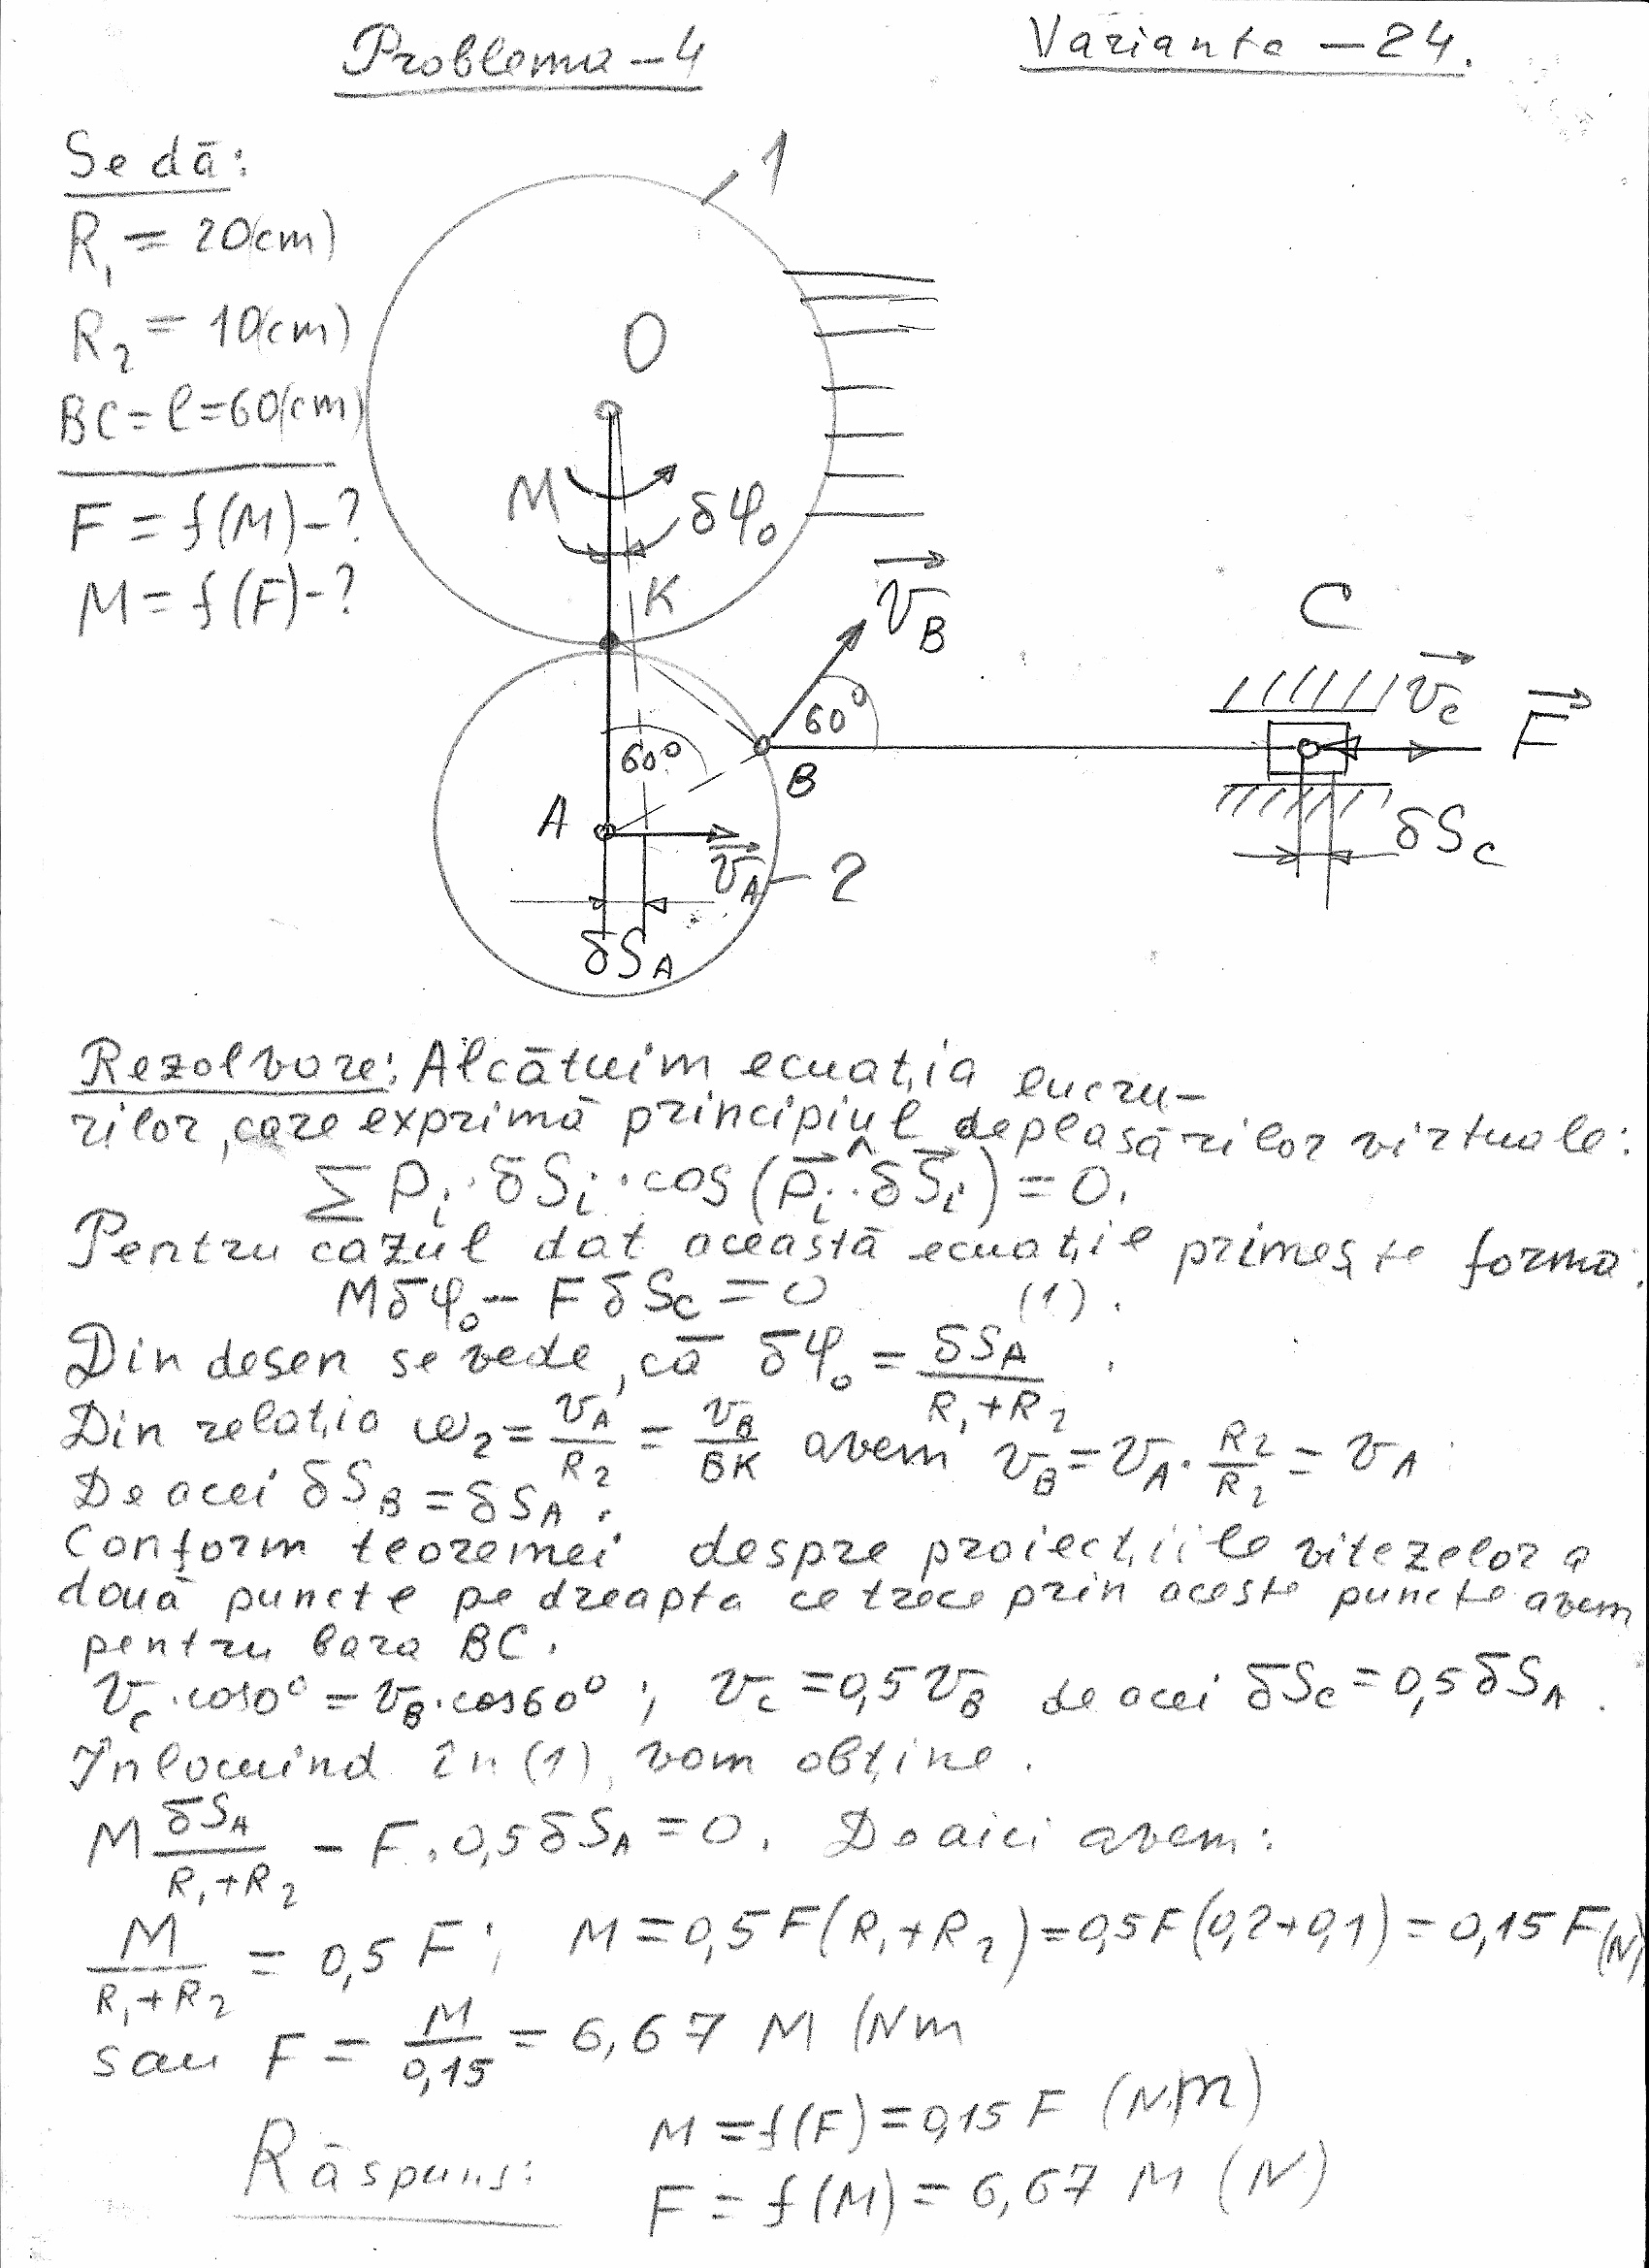 Problema – 4
Varianta – 24.
Se dă:
R₁ = 20(cm)
R₂ = 10(cm)
BC = l = 60(cm)
F = f(M) – ?
M = f(F) – ?
1
O
M
δφ₀
K
v_B
60°
60°
A
B
C
v_C
F
v_A
2
δS_A
δS_C
Rezolvare: Alcătuim ecuația lucru-
rilor, care exprimă principiul deplasărilor virtuale:
∑ Pᵢ · δSᵢ · cos (Pᵢ ^ δSᵢ) = 0.
Pentru cazul dat această ecuație primește forma:
Mδφ₀ – F δS_C = 0 (1).
Din desen se vede, că δφ₀ = δS_A / (R₁ + R₂).
Din relația ω₂ = v_A / R₂ = v_B / BK avem v_B = v_A · R₂ / R₂ = v_A.
De acei δS_B = δS_A.
Conform teoremei despre proiecțiile vitezelor a
două puncte pe dreapta ce trece prin aceste puncte avem
pentru bara BC.
v_C · cos0° = v_B · cos60° ; v_C = 0,5 v_B de acei δS_C = 0,5 δS_A.
Înlocuind în (1), vom obține.
M δS_A / (R₁ + R₂) – F · 0,5 δS_A = 0. De aici avem:
M / (R₁ + R₂) = 0,5 F ; M = 0,5 F (R₁ + R₂) = 0,5F (0,2 + 0,1) = 0,15 F (N)
sau F = M / 0,15 = 6,67 M (Nm
Răspuns:
M = f(F) = 0,15 F (N·m)
F = f(M) = 6,67 M (N)